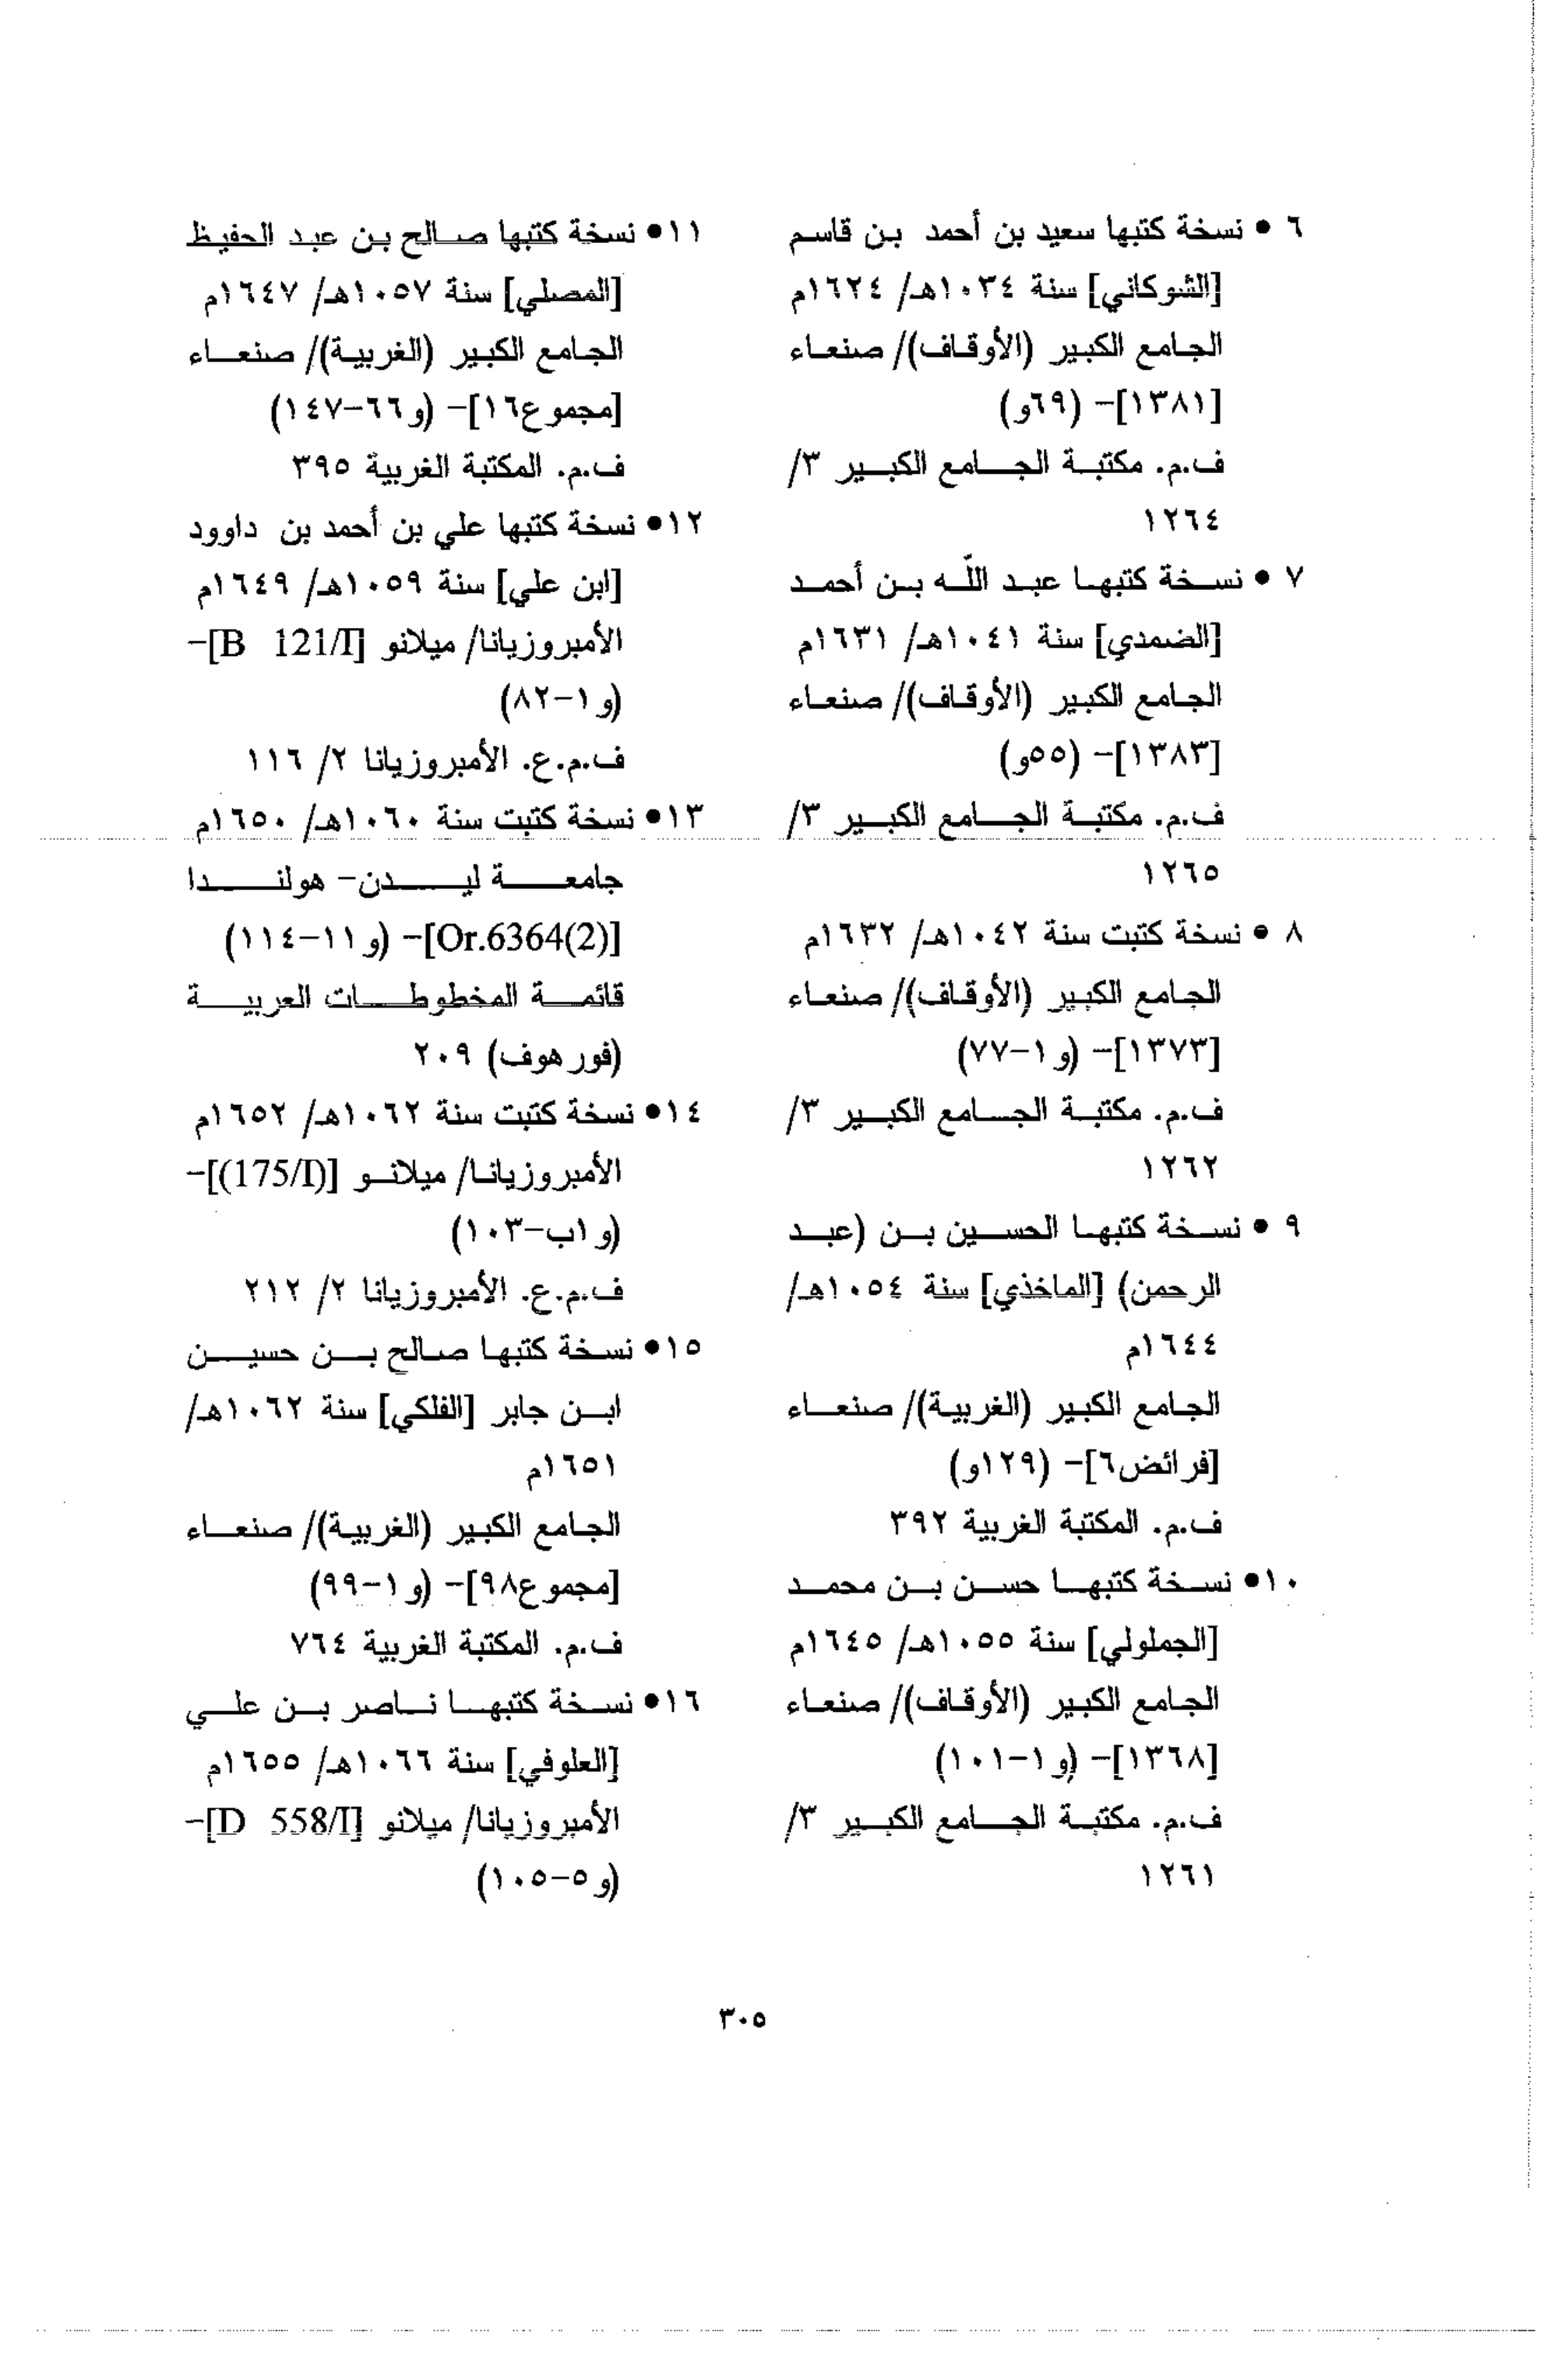 ٦ • نسخة كتبها سعيد بن أحمد بن قاسم
[الشوكاني] سنة ١٠٣٤هـ/ ١٦٢٤م
الجامع الكبير (الأوقاف)/ صنعاء
[١٣٨١]- (٦٩و)
ف.م. مكتبة الجامع الكبير ٣/
١٢٦٤
٧ • نسخة كتبها عبد اللّه بن أحمد
[الضمدي] سنة ١٠٤١هـ/ ١٦٣١م
الجامع الكبير (الأوقاف)/ صنعاء
[١٣٨٣]- (٥٥و)
ف.م. مكتبة الجامع الكبير ٣/
١٢٦٥
٨ • نسخة كتبت سنة ١٠٤٢هـ/ ١٦٣٢م
الجامع الكبير (الأوقاف)/ صنعاء
[١٣٧٣]- (و١-٧٧)
ف.م. مكتبة الجامع الكبير ٣/
١٢٦٢
٩ • نسخة كتبها الحسين بن (عبد
الرحمن) [الماخذي] سنة ١٠٥٤هـ/
١٦٤٤م
الجامع الكبير (الغربية)/ صنعاء
[فرائض٦]- (١٢٩و)
ف.م. المكتبة الغربية ٣٩٢
١٠• نسخة كتبها حسن بن محمد
[الجملولي] سنة ١٠٥٥هـ/ ١٦٤٥م
الجامع الكبير (الأوقاف)/ صنعاء
[١٣٦٨]- (و١-١٠١)
ف.م. مكتبة الجامع الكبير ٣/
١٢٦١
١١• نسخة كتبها صالح بن عبد الحفيظ
[المصلي] سنة ١٠٥٧هـ/ ١٦٤٧م
الجامع الكبير (الغربية)/ صنعاء
[مجموع١٦]- (و٦٦-١٤٧)
ف.م. المكتبة الغربية ٣٩٥
١٢• نسخة كتبها علي بن أحمد بن داوود
[ابن علي] سنة ١٠٥٩هـ/ ١٦٤٩م
الأمبروزيانا/ ميلانو [B 121/I]-
(و١-٨٢)
ف.م.ع. الأمبروزيانا ٢/ ١١٦
١٣• نسخة كتبت سنة ١٠٦٠هـ/ ١٦٥٠م
جامعة ليدن- هولندا
[Or.6364(2)]- (و١١-١١٤)
قائمة المخطوطات العربية
(فورهوف) ٢٠٩
١٤• نسخة كتبت سنة ١٠٦٢هـ/ ١٦٥٢م
الأمبروزيانا/ ميلانو [(175/I)]-
(و١ب-١٠٣)
ف.م.ع. الأمبروزيانا ٢/ ٢١٢
١٥• نسخة كتبها صالح بن حسين
ابن جابر [الفلكي] سنة ١٠٦٢هـ/
١٦٥١م
الجامع الكبير (الغربية)/ صنعاء
[مجموع٩٨]- (و١-٩٩)
ف.م. المكتبة الغربية ٧٦٤
١٦• نسخة كتبها ناصر بن علي
[العلوفي] سنة ١٠٦٦هـ/ ١٦٥٥م
الأمبروزيانا/ ميلانو [D 558/I]-
(و٥-١٠٥)
٣٠٥